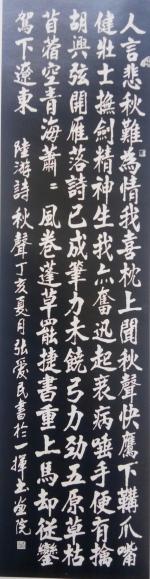 人言悲秋難為情我喜枕上聞秋聲快鷹下韝爪嘴
健壯士撫劍精神生我亦奮迅起衰病唾手便有擒
胡興弦開雁落詩已成筆力未饒弓力勁五原草枯
苜蓿空青海蕭〻風卷蓬草罷捷書重上馬却從鑾
駕下遼東 陸游詩秋聲丁亥夏月張愛民書於一揮書畫院